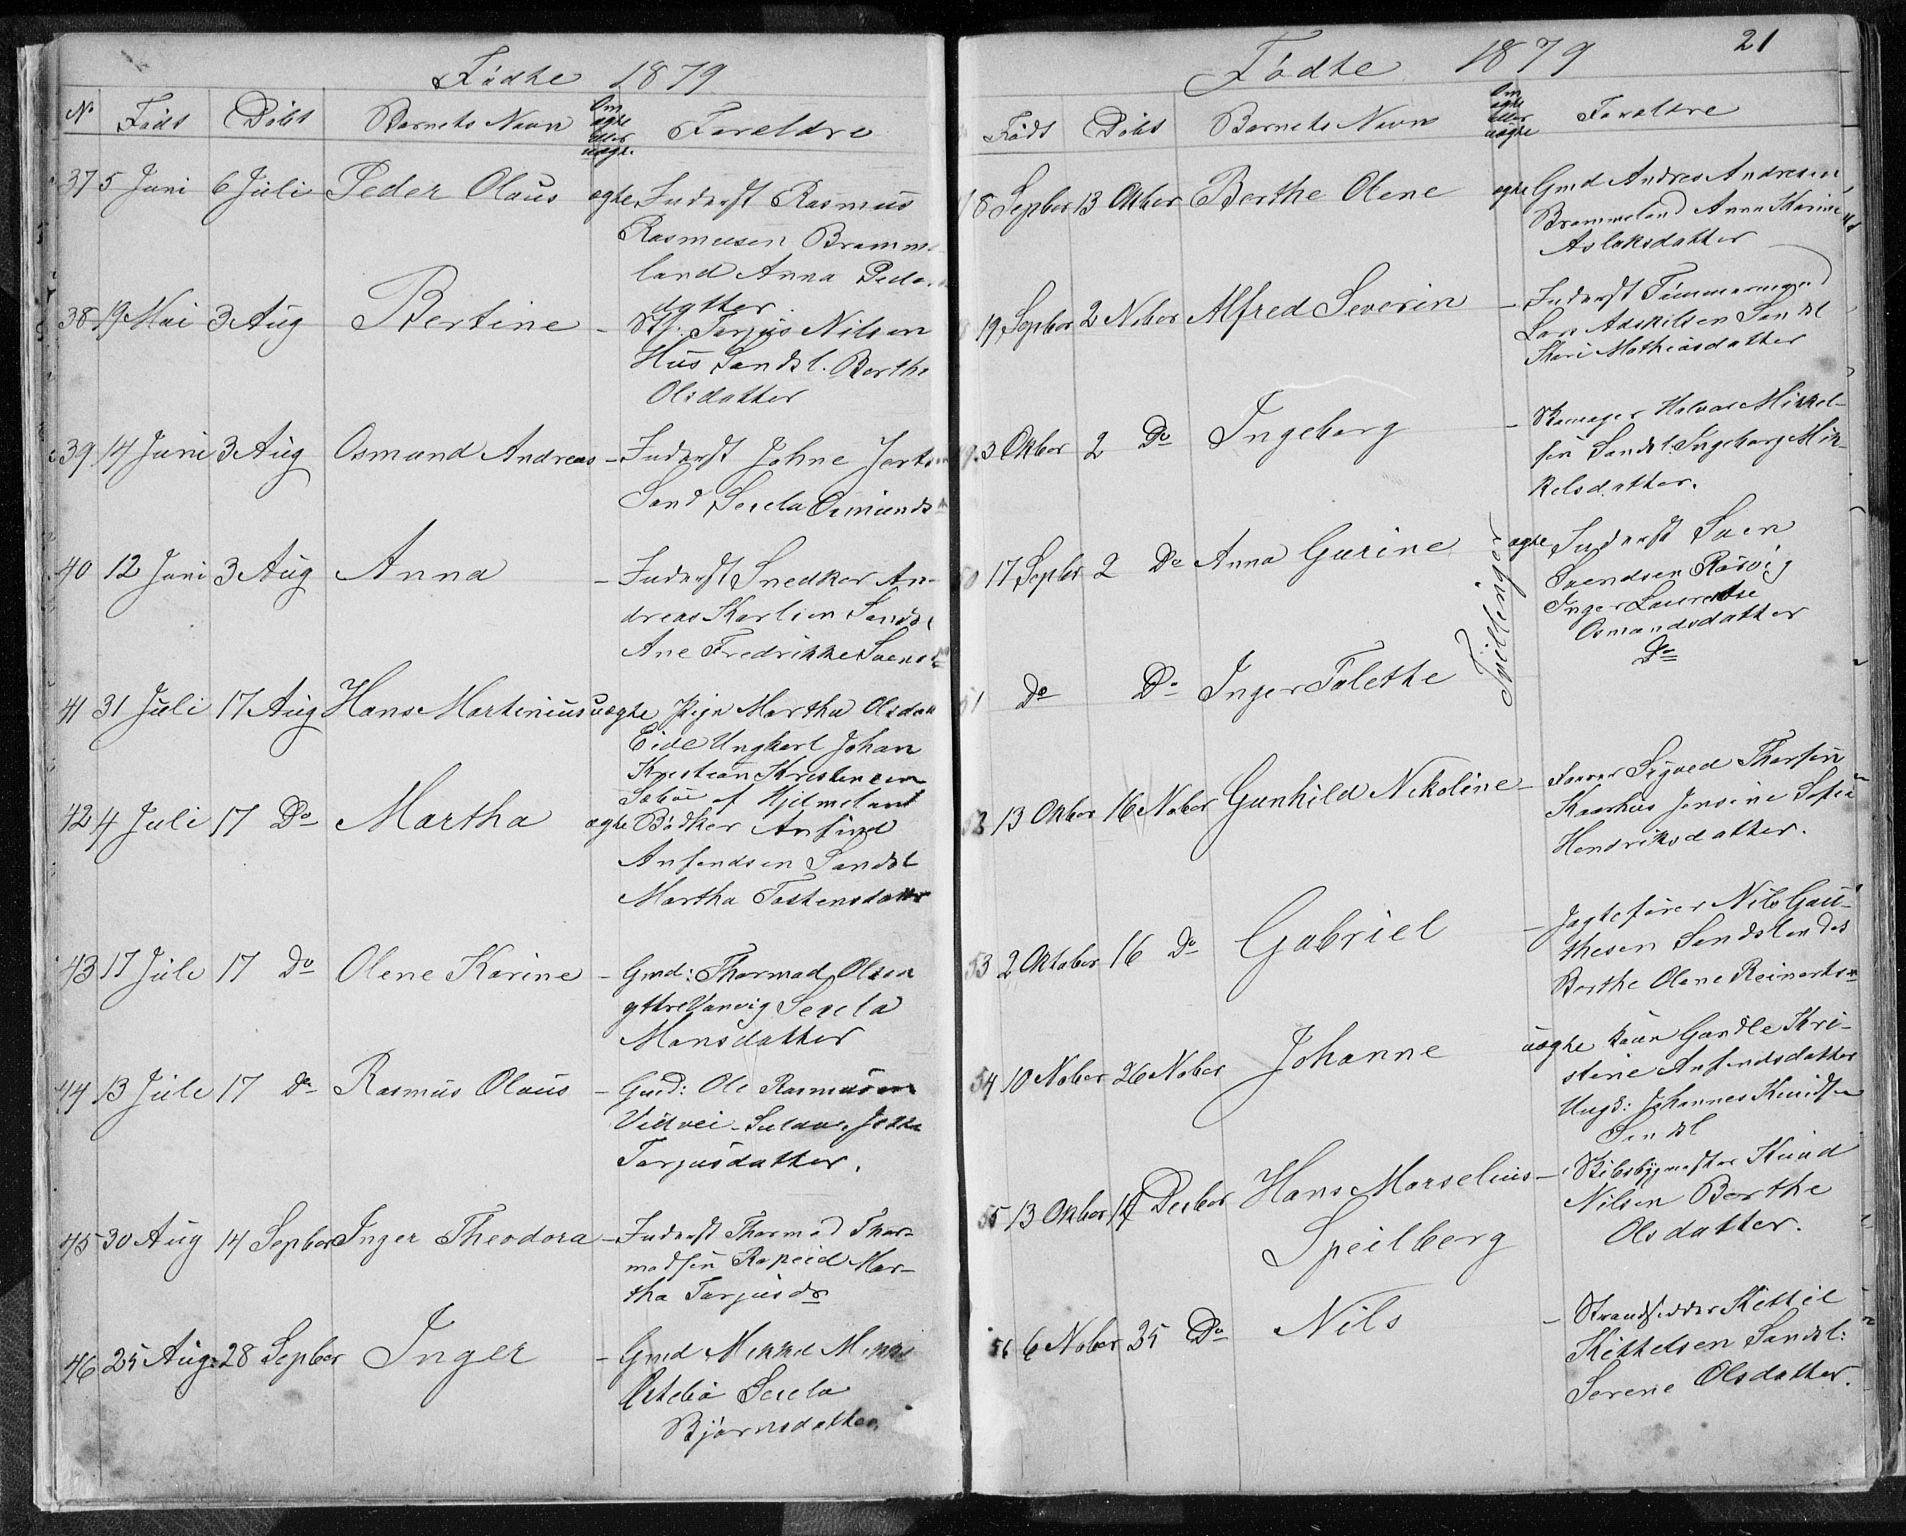 Fødte 1879
No Føds Døbt Barnets Navn Om ægte eller uægte. Foreldre
37 5 Juni 6 Juli Peder Olaus ægte Inderst Rasmus
Rasmusen Bramme
land Anna Peders
datter.
38 19 Mai 3 Aug Bertine - Torjus Nilsen
Hus Sandsl. Berthe
Olsdatter
39 14 Juni 3 Aug Osmund Andreas - Inderst Johne
Sand Serela Osmunds
40 12 Juni 3 Aug Anna - Inderst Snedker An-
dreas Karlsen Sandsl
Ane Fredrikke Svens
41 31 Juli 17 Aug Hans Martinius uægte Pige Martha Olsdatt
Eide Ungkarl Johan
Kristian Kristensen
Sæbøe af Hjelmeland
42 4 Juli 17 Do Martha ægte Bødker Anfind
Anfindsen Sandsl
Martha Tostensdatter
43 17 Juli 17 Do Olene Karine - Gmd: Thormod Olsen
yttre Vanvig Serela
Monsdatter
44 13 Juli 17 Do Rasmus Olaus - Gmd: Ole Rasmusen
Vidvei Suldal,
Torjusdatter.
45 30 Aug 14 Sepber Inger Theodora - Inderst Thormod Thor-
modsen Ropeid Mar-
tha Torjusdr
46 25 Aug: 28 Sepber Inger - Gmd Mikkel
Østebø Serela
Bjørnsdatter
21
Fødte 1879
Føds Døbt Barnets Navn Om ægte eller uægte Foreldre
8 Sepber 13 Okber Berthe Olene ægte Gmd Andreas Andresen
Brommeland Anna Karine
Aslaksdatter
19 Sepber 2 Nober Alfred Severin - Inderst Tømmermand
Lars Adskilsen Sandsl
Kari Mathiasdatter
3 Okber 2 Do Ingeborg - Skomager Halvor Mikkel-
sen Sandsl. Ingeborg Mik-
kelsdatter.
50 17 Sepber 2 Do Anna Gurine Tvillinger ægte Inderst Sven
Svendsen Røsvig
Inger Laurentse
Osmundsdatter
51 Do Do Inger Talethe Do
52 13 Okber 16 Nober Gunhild Nikoline - Farver Sigved Thorsen
Kaarhus Jensine Sofie
Hendriksdatter.
53 2 Oktober 16 Do Gabriel - Jagtefører Nils Gau-
thesen Sandsl
Berthe Olene Reinerts
54 10 Nober 26 Nober Johanne uægte Gundle Kri-
stine Anfindsdatter
Ungk: Johannes Knudsen
Sandsl
55 13 Okber 14 Desber Hans Marselius - Skibsbygmester Knud
Speilberg Nilsen Berthe
Olsdatter.
56 6 Nober 25 Do Nils - Strandsidder Kittil
Kittelsen Sandsl:
Serene Olsdatter.